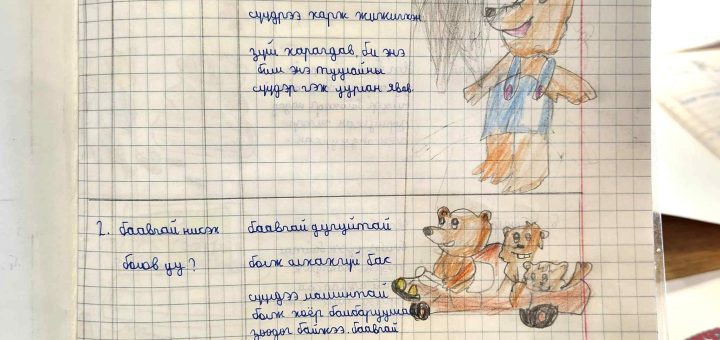 сүүдрээ харж жижигхэн
зүй харагдав, би энэ
бол энэ туулайны
сүүдэр гэж уурлан явав
2. баавгай нисэх
болов уу?
баавгай дугуйтай
болж алхахгүй бас
сүүлдээ машинтай
болж хоёр бамбаруушаа
зөөдөг байжээ. баавгай